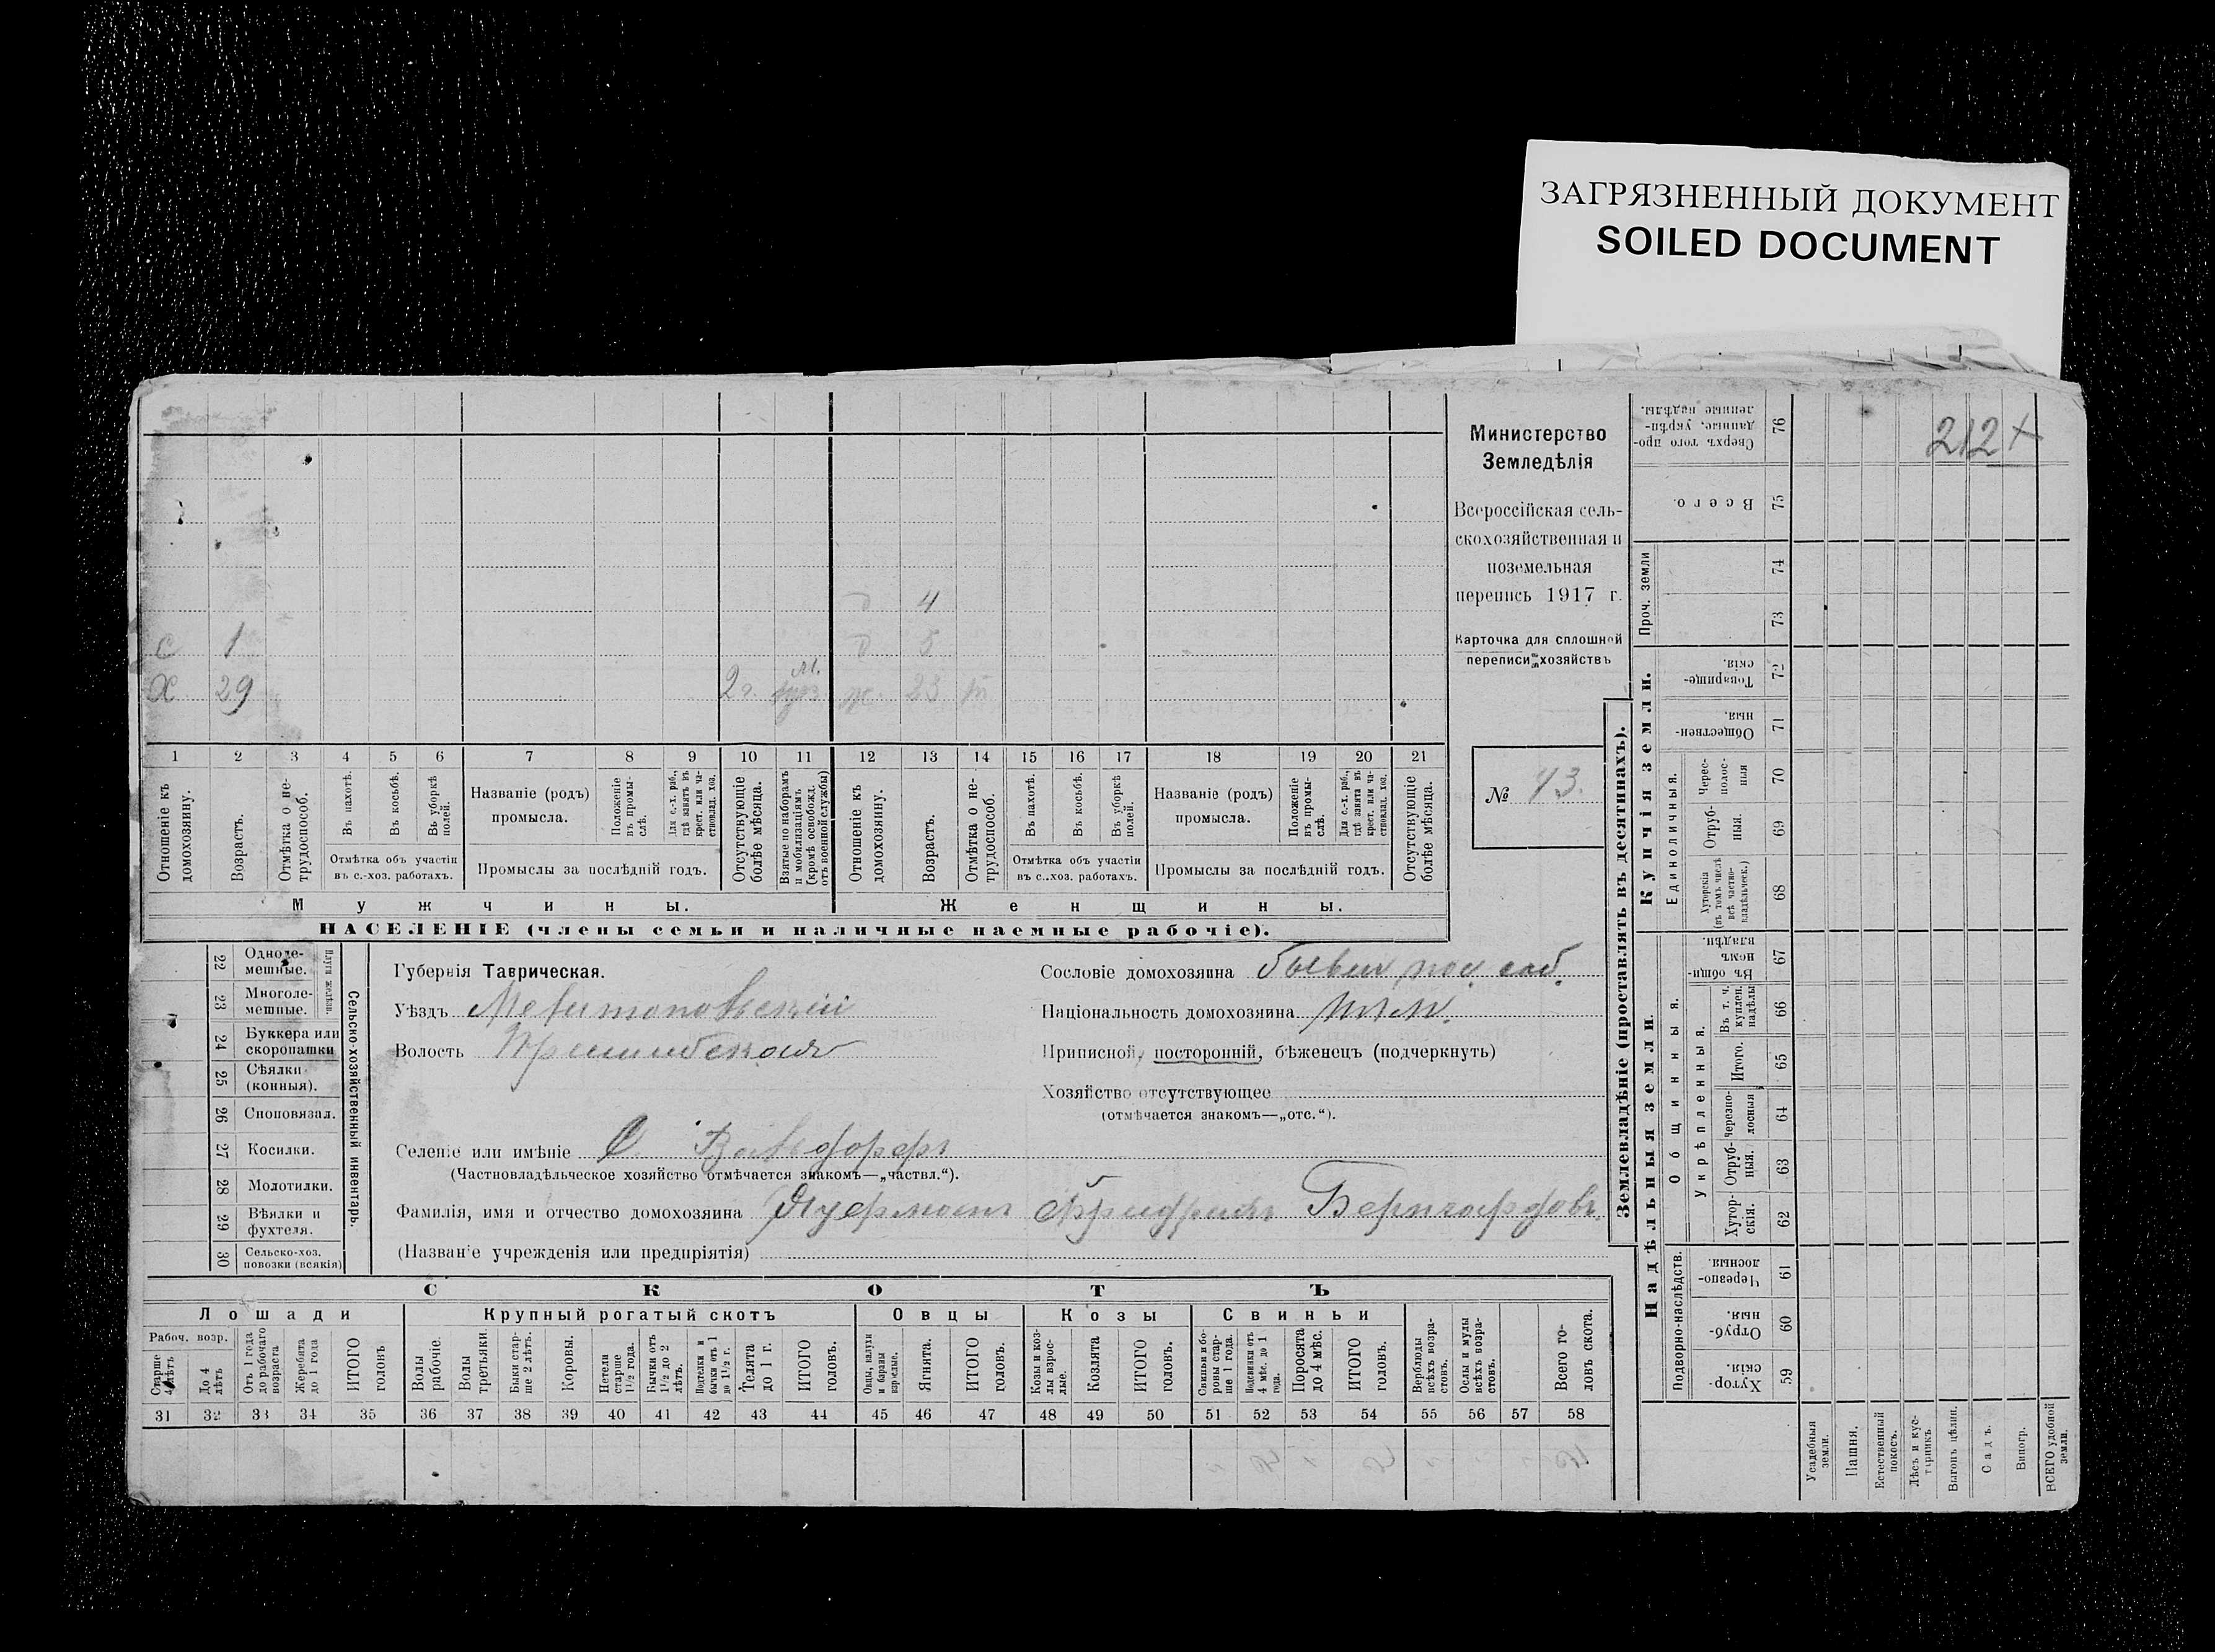 ЗАГРЯЗНЕННЫЙ ДОКУМЕНТ
SOILED DOCUMENT
212
4
с 1 д 5
х 29 2 г. м. ж. 23
1 2 3 4 5 6 7 8 9 10 11 12 13 14 15 16 17 18 19 20 21
Отношеніе къ домохозяину.
Возрастъ.
Отмѣтка о не-трудоспособ.
Въ пахотѣ.
Въ косьбѣ.
Въ уборкѣ полей.
Отмѣтка объ участіи въ с.-хоз. работахъ.
Названіе (родъ) промысла.
Положеніе въ промы-слѣ.
Для с.-х. раб., гдѣ занятъ въ крест. или ча-стновлад. хоз.
Промыслы за послѣдній годъ.
Отсутствующіе болѣе мѣсяца.
Взятые по наборамъ и мобилизаціямъ (кромѣ освобожд. отъ военной службы)
Отношеніе къ домохозяину.
Возрастъ.
Отмѣтка о не-трудоспособ.
Въ пахотѣ.
Въ косьбѣ.
Въ уборкѣ полей.
Отмѣтка объ участіи въ с.-хоз. работахъ.
Названіе (родъ) промысла.
Положеніе въ промы-слѣ.
Для с.-х. раб., гдѣ занята въ крест. или ча-стновлад. хоз.
Промыслы за послѣдній годъ.
Отсутствующіе болѣе мѣсяца.
Мужчины. Женщины.
НАСЕЛЕНІЕ (члены семьи и наличные наемные рабочіе).
Министерство
Земледѣлія
Всероссійская сель-
скохозяйственная и
поземельная
перепись 1917 г.
Карточка для сплошной
переписи хозяйствъ
№ 43.
22 Одноле-мешные.
23 Многоле-мешные.
Плуги желѣзн.
24 Буккера или скоропашки
25 Сѣялки (конныя).
26 Сноповязал.
27 Косилки.
28 Молотилки.
29 Вѣялки и фухтеля.
30 Сельско-хоз. повозки (всякія)
Сельско-хозяйственный инвентарь.
Губернія Таврическая.
Уѣздъ Мелитопольскій
Волость Пришибская
Селеніе или имѣніе С. Вальдорфъ
(Частновладѣльческое хозяйство отмѣчается знакомъ—„частвл.“).
Фамилія, имя и отчество домохозяина Фридрихъ Бернгардовъ
(Названіе учрежденія или предпріятія)
Сословіе домохозяина бывш. пос. соб.
Національность домохозяина нѣм.
Приписной, посторонній, бѣженецъ (подчеркнуть)
Хозяйство отсутствующее
(отмѣчается знакомъ—„отс.“).
СКОТЪ
Лошади Крупный рогатый скотъ Овцы Козы Свиньи
Рабоч. возр.
Старше 4 лѣтъ
До 4 лѣтъ
Отъ 1 года до рабочаго возраста
Жеребята до 1 года
ИТОГО головъ
Волы рабочіе.
Волы третьяки.
Быки стар-ше 2 лѣтъ.
Коровы.
Нетели старше 1½ года.
Бычки отъ 1½ до 2 лѣтъ.
Подтелки и бычки отъ 1 до 1½ г.
Телята до 1 г.
ИТОГО головъ.
Овцы, валухи и бараны взрослые.
Ягнята.
ИТОГО головъ.
Козы и коз-лы взрос-лые.
Козлята
ИТОГО головъ.
Свиньи и бо-ровы стар-ше 1 года.
Подсвинки отъ 4 мѣс. до 1 года.
Поросята до 4 мѣс.
ИТОГО головъ.
Верблюды всѣхъ возра-стовъ.
Ослы и мулы всѣхъ возра-стовъ.
Всего го-ловъ скота.
31 32 33 34 35 36 37 38 39 40 41 42 43 44 45 46 47 48 49 50 51 52 53 54 55 56 57 58
Землевладѣніе (проставлять въ десятинахъ).
Надѣльныя земли. Купчія земли. Проч. земли
Подворно-наслѣдств.
Общинныя.
Укрѣпленныя.
Единоличныя.
59 Хутор-скія.
60 Отруб-ныя.
61 Черезпо-лосныя
62 Хутор-скія.
63 Отруб-ныя.
64 Черезпо-лосныя
65 Итого.
66 Въ т. ч. куплен. надѣлы
67 Въ общи-номъ владѣн.
68 Хуторскія (въ томъ числѣ всѣ частно-владѣльческ.)
69 Отруб-ныя.
70 Черес-полос-ныя
71 Обществен-ныя.
72 Товарище-скія.
73
74
75 Всего.
76 Сверхъ того про-данные, укрѣп-ленные надѣлы.
Усадебныя земли.
Пашня.
Естественный покосъ.
Лѣсъ и кус-тарникъ.
Выгонъ цѣлин.
Садъ.
Виногр.
ВСЕГО удобной земли.